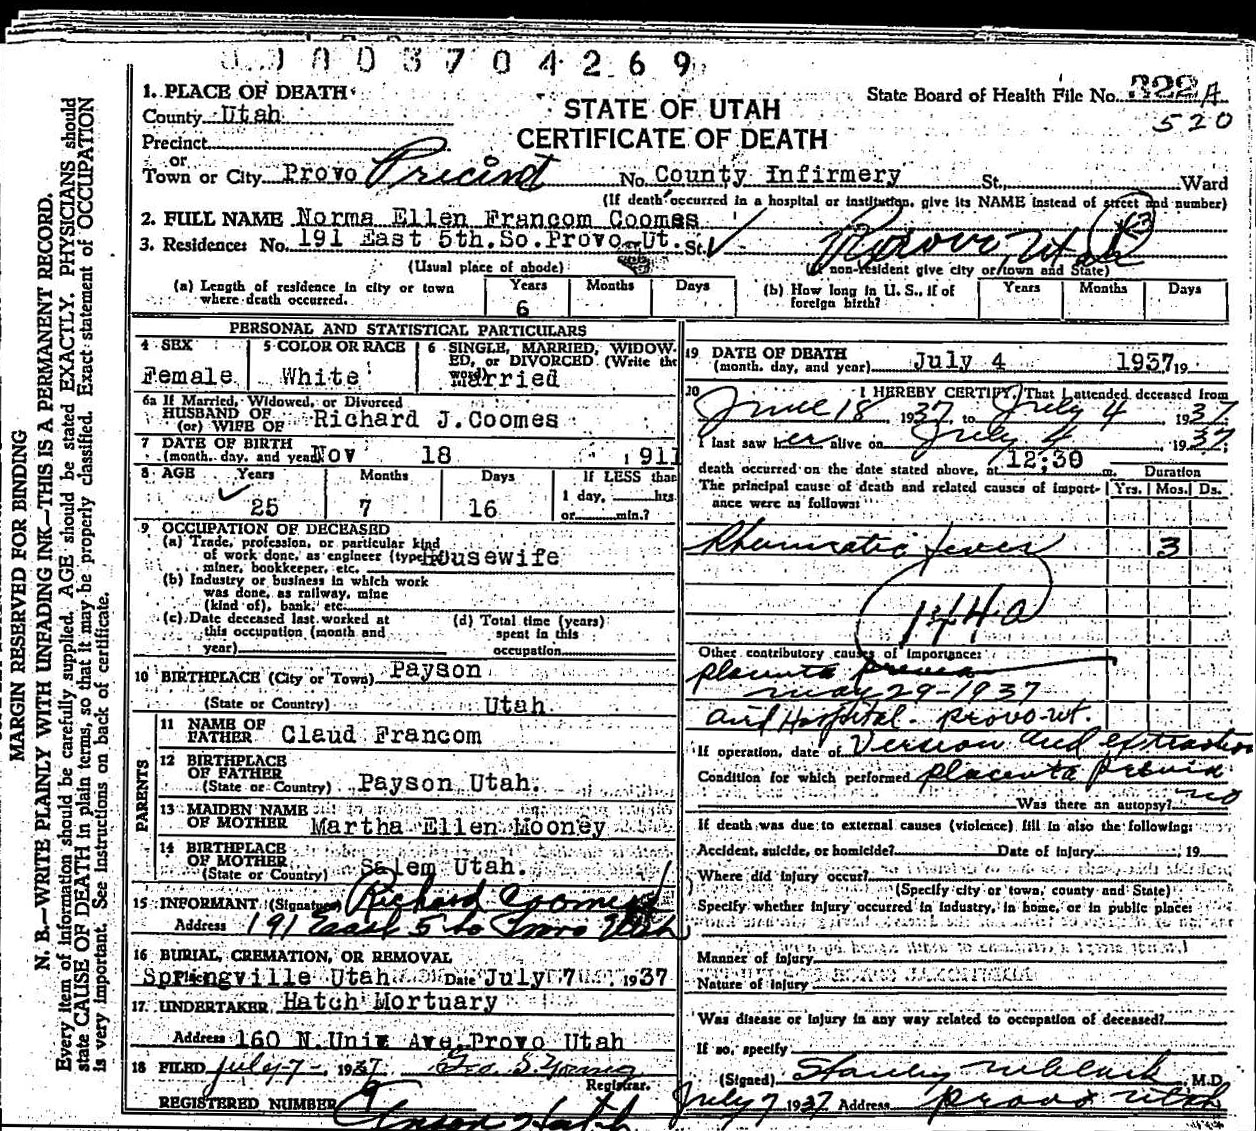 0003704269
1. PLACE OF DEATH
County Utah
STATE OF UTAH
CERTIFICATE OF DEATH
State Board of Health File No. A
520
Precinct
or
Town or City Provo Precinct No. County Infirmery St., Ward
(If death occurred in a hospital or institution, give its NAME instead of street and number)
2. FULL NAME Norma Ellen Francom Coomes
3. Residence: No. 191 East 5th.So.Provo Ut. St.
(Usual place of abode)
(If non-resident give city or town and State)
(a) Length of residence in city or town where death occurred. Years 6 Months Days
(b) How long in U. S., if of foreign birth? Years Months Days
PERSONAL AND STATISTICAL PARTICULARS
4 SEX Female
5 COLOR OR RACE White
6 SINGLE, MARRIED, WIDOWED, or DIVORCED. (Write the word) Married
6a If Married, Widowed, or Divorced
HUSBAND OF
(or) WIFE OF Richard J.Coomes
7 DATE OF BIRTH
(month, day, and year) Nov 18 1911
8 AGE Years 25 Months 7 Days 16
If LESS than
1 day, hrs.
or min.?
9 OCCUPATION OF DECEASED
(a) Trade, profession, or particular kind
of work done, as engineer (type Housewife
miner, bookkeeper, etc.
(b) Industry or business in which work
was done, as railway, mine
(kind of), bank, etc.
(c) Date deceased last worked at
this occupation (month and
year)
(d) Total time (years)
spent in this
occupation
10 BIRTHPLACE (City or Town) Payson
(State or Country) Utah
PARENTS
11 NAME OF
FATHER Claud Francom
12 BIRTHPLACE
OF FATHER
(State or Country) Payson Utah.
13 MAIDEN NAME
OF MOTHER Martha Ellen Mooney
14 BIRTHPLACE
OF MOTHER
(State or Country) Salem Utah.
15 INFORMANT (Signature) Richard Coomes
Address 191 East 5 So Provo Utah
16 BURIAL, CREMATION, OR REMOVAL
Springville Utah Date July 7 1937
17. UNDERTAKER Hatch Mortuary
Address 160 N.Univ Ave.Provo Utah
18 FILED July-7- 1937
Registrar.
REGISTERED NUMBER 9
19 DATE OF DEATH
(month, day, and year) July 4 1937 19
20 I HEREBY CERTIFY, That I attended deceased from
June 18 1937 to July 4 1937
I last saw her alive on July 4 1937
death occurred on the date stated above, at 12;30 m.
Duration
The principal cause of death and related causes of importance were as follows:
Yrs. Mos. Ds.
Rheumatic fever 3
144a
Other contributory causes of importance:
placenta previa
may 29-1937
aird Hospital - Provo-ut.
If operation, date of Version and extraction
Condition for which performed placenta previa
Was there an autopsy? no
If death was due to external causes (violence) fill in also the following:
Accident, suicide, or homicide? Date of injury 19
Where did injury occur?
(Specify city or town, county and State)
Specify whether injury occurred in industry, in home, or in public place:
Manner of injury
Nature of injury
Was disease or injury in any way related to occupation of deceased?
If so, specify
(Signed) Stanley M. Clark M.D.
July 7 1937 Address Provo Utah
Anson Hatch
MARGIN RESERVED FOR BINDING
N. B.—WRITE PLAINLY WITH UNFADING INK—THIS IS A PERMANENT RECORD.
Every item of information should be carefully supplied. AGE should be stated EXACTLY. PHYSICIANS should
state CAUSE OF DEATH in plain terms, so that it may be properly classified. Exact statement of OCCUPATION
is very important. See instructions on back of certificate.